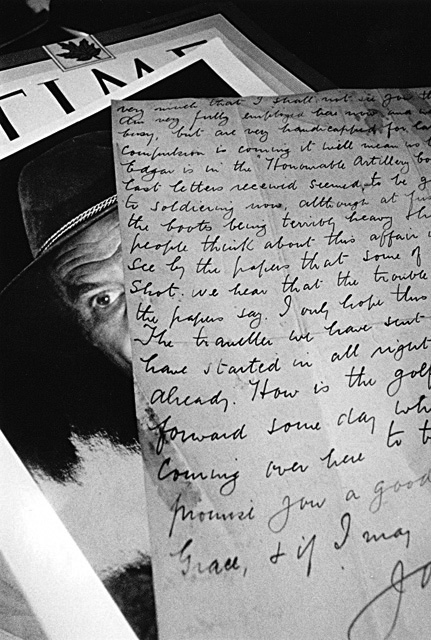 TIME
very much that I shall not see you
am very fully employed here now and
busy, but are very handicapped for
Compulsion is coming it will mean
Edgar is in the Honourable Artillery
last letters received seemed to be
to soldiering now, although at
the boots being terribly heavy
people think about this affair
see by the papers that some of
shot. we hear that the trouble
the papers say. I only hope this
The traveller we have sent
have started in all right
already. How is the golf
forward some day
Coming over here to
promise you a good
Grace, & if I may